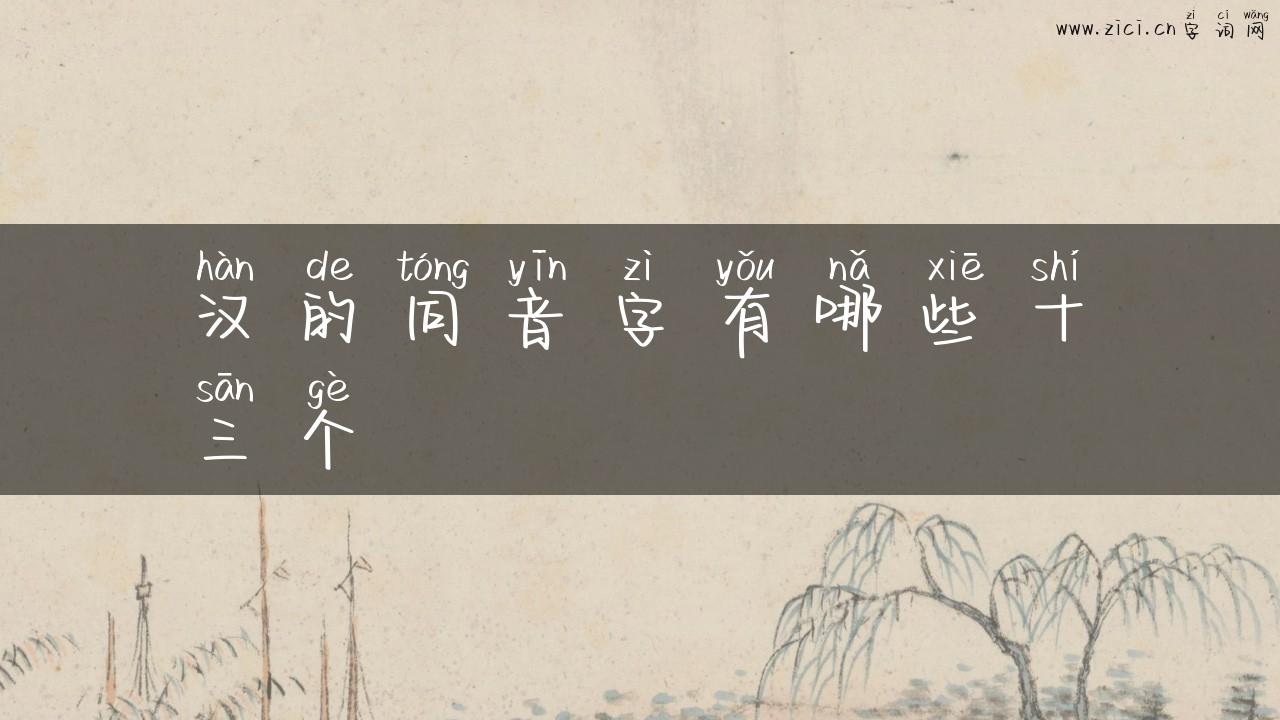 zì cí wǎng
www.zici.cn 字 词 网
hàn de tóng yīn zì yǒu nǎ xiē shí
汉 的 同 音 字 有 哪 些 十
sān gè
三 个